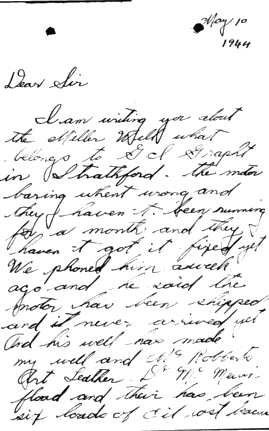 May 10
1944
Dear Sir
I am writing you about
the Miller Well what
belongs to G I Graph
in Strathford - the motor
baring whent wrong and
they haven't been running
for a month and they
haven't got it fixed yet
We phoned him a week
ago and he said the
motor has been shipped
and it never arrived yet
And his well has made
my well and Mc Roberts
Art Leather, Dr Mc
flood and their has been
six loads of oil lost